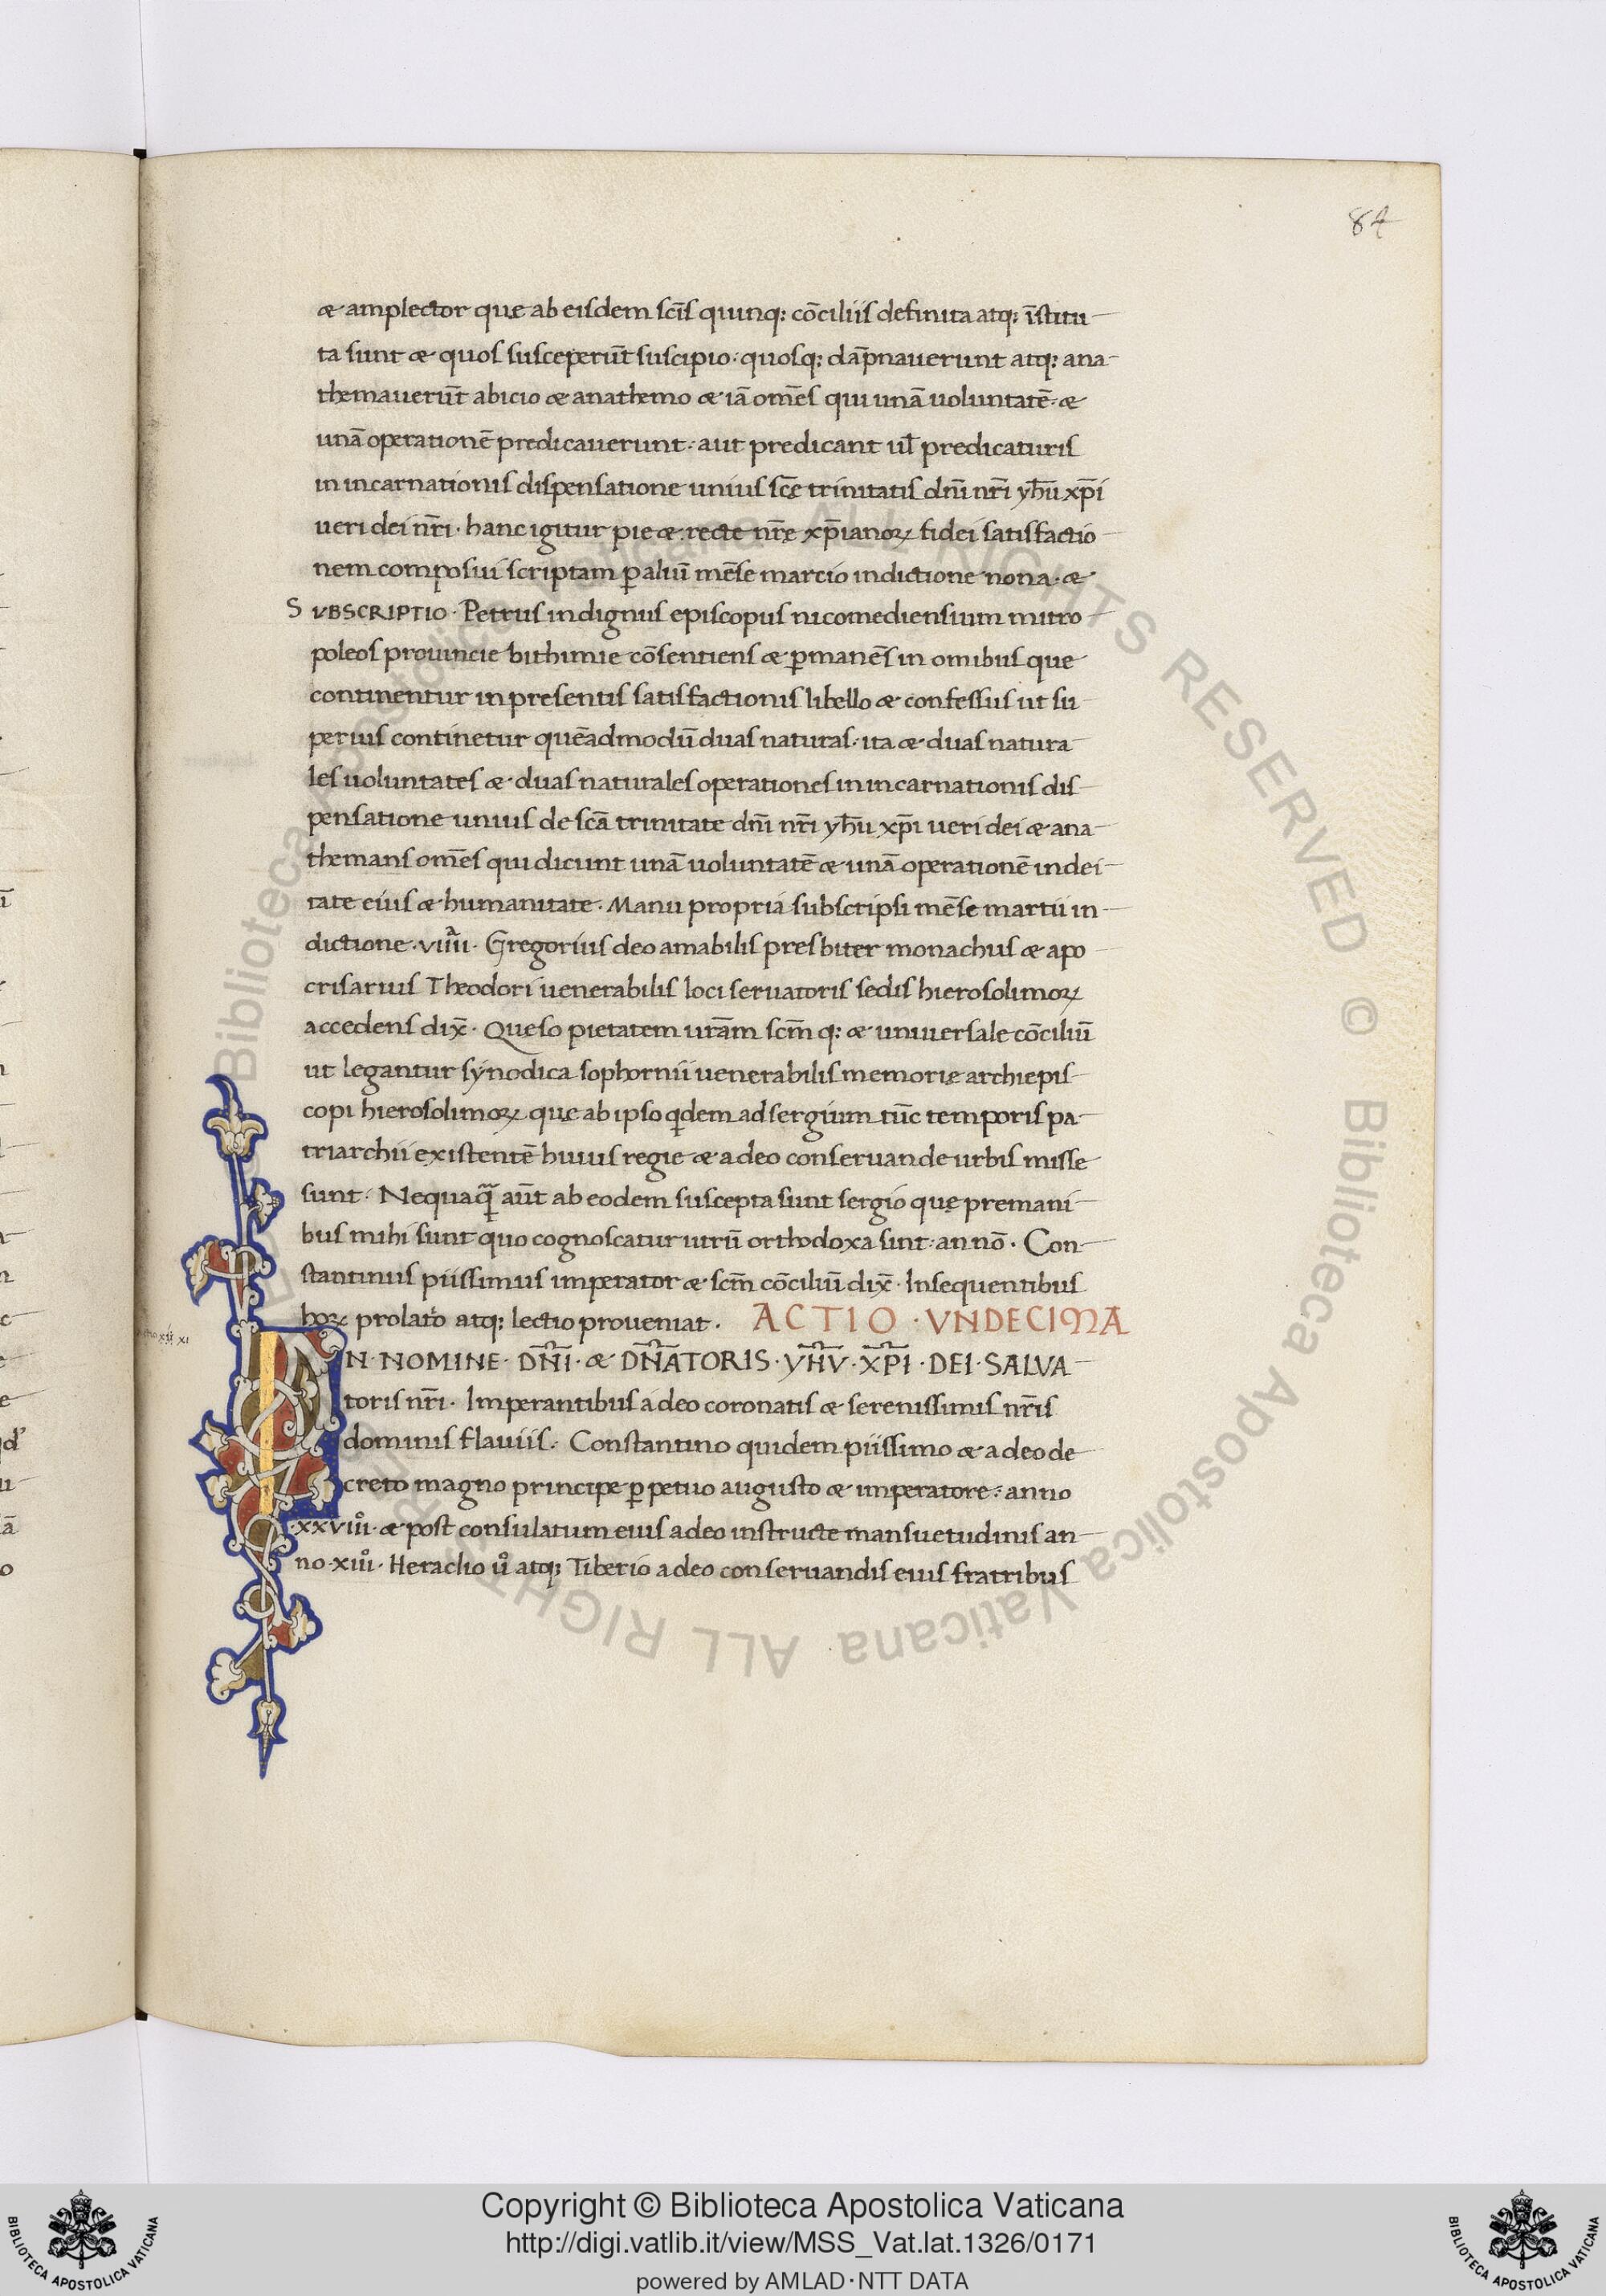 84
æ amplector que ab eisdem sc̄is quinq; cōciliis definita atq; īstitu
ta sunt æ quos susceperūt suscipio· quosq; dāpnauerunt atq; ana
themauerūt abicio æ anathemo æ iā om̄es qui unā uoluntatē· æ
unā operationē predicauerunt· aut predicant ul̄ predicaturis
in incarnationis dispensatione unius sc̄e trinitatis dn̄i nr̄i yh̄u xp̄i
ueri dei nr̄i· hanc igitur pie æ recte nr̄ę xp̄ianoꝝ fidei satisfactio
nem composiui scriptam ꝑ aliū mēse marcio indictione nona· æ
SVBSCRIPTIO· Petrus indignus episcopus nicomediensium mitro
poleos prouincie bithimie cōsentiens æ ꝑmanēs in omibus que
continentur in presentis satisfactionis libello æ confessus ut su
perius continetur quēadmodū duas naturas· ita æ duas natura
les uoluntates æ duas naturales operationes in incarnationis dis
pensatione unius de sc̄a trinitate dn̄i nr̄i yh̄u xp̄i ueri dei æ ana
themans om̄es qui dicunt unā uoluntatē æ unā operationē in dei
tate eius æ humanitate· Manu propria subscripsi mēse martii in
dictione ·viiii· Gregorius deo amabilis presbiter monachus æ apo
crisarius Theodori uenerabilis loci seruatoris sedis hierosolimoꝝ
accedens dix̄· Queso pietatem uram̄ scm̄ q; æ uniuersale cōciliū
ut legantur synodica sophornii uenerabilis memorię archiepis
copi hierosolimoꝝ que ab ipso qdem ad sergium tūc temporis pa
triarchii existentē huius regie æ a deo conseruande urbis misse
sunt· Nequaq̄ aūt ab eodem suscepta sunt sergio quę premani
bus mihi sunt quo cognoscatur utrū orthodoxa sint· an nō· Con
stantinus piissimus imperator æ scm̄ cōciliū dix̄· Insequentibus
hoꝝ prolato atq; lectio proueniat· ACTIO · VNDECIMA
IN· NOMINE· DN̄I· æ DN̄ATORIS· YH̄V· XP̄I· DEI· SALVA
toris nr̄i· Imperantibus a deo coronatis æ serenissimis nr̄is
dominis flauiis· Constantino quidem piissimo æ a deo de
creto magno principe ꝑpetuo augusto æ imperatore· anno
·xxviiͦ· æ post consulatum eius a deo instructe mansuetudinis an
no ·xiiiͦ· Heraclio uͦ atq; Tiberio a deo conseruandis eius fratribus
© Biblioteca Apostolica Vaticana ALL RIGHTS RESERVED
Copyright © Biblioteca Apostolica Vaticana
http://digi.vatlib.it/view/MSS_Vat.lat.1326/0171
powered by AMLAD·NTT DATA
BIBLIOTECA APOSTOLICA VATICANA
BIBLIOTECA APOSTOLICA VATICANA